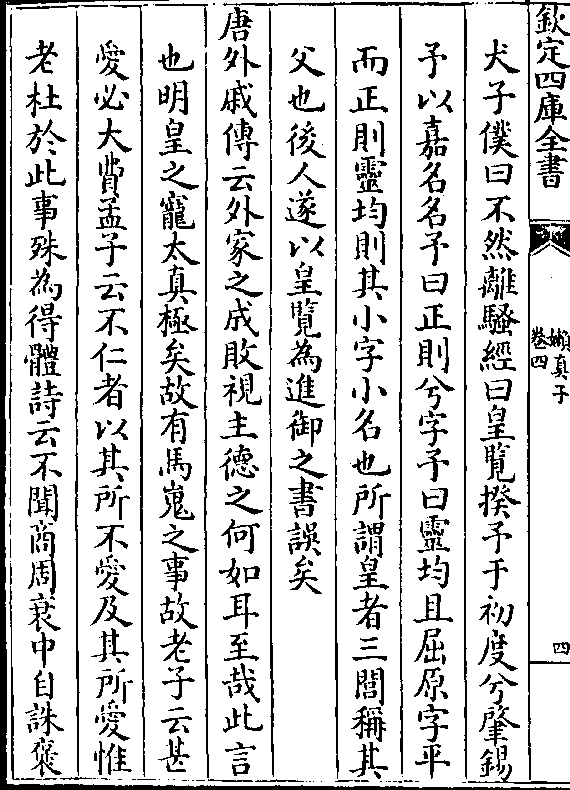 欽定四庫全書
懶真子
卷四
四
犬子僕曰不然離騷經曰皇覽揆予于初度兮肇錫
予以嘉名名予曰正則兮字予曰靈均且屈原字平
而正則靈均則其小字小名也所謂皇者三閭稱其
父也後人遂以皇覽為進御之書誤矣
唐外戚傳云外家之成敗視主德之何如耳至哉此言
也明皇之寵太真極矣故有馬嵬之事故老子云甚
愛必大費孟子云不仁者以其所不愛及其所愛惟
老杜於此事殊為得體詩云不聞商周衰中自誅褒